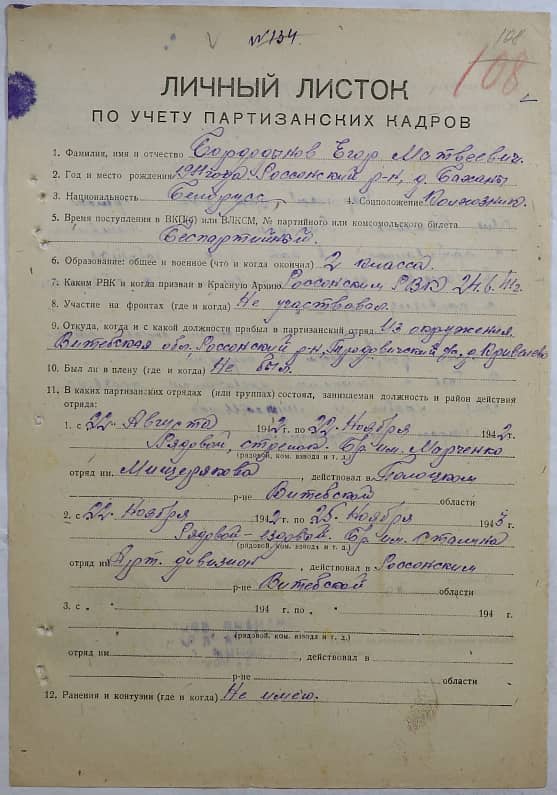 № 134
108
108
ЛИЧНЫЙ ЛИСТОК
ПО УЧЕТУ ПАРТИЗАНСКИХ КАДРОВ
1. Фамилия, имя и отчество Бордодынов Егор Матвеевич.
2. Год и место рождения 1911 года Россонский р-н, д. Баханы
3. Национальность Белорусс, 4. Соцположение Колхозник.
5. Время поступления в ВКП(б) или ВЛКСМ, № партийного или комсомольского билета
Беспартийный.
6. Образование: общее и военное (что и когда окончил) 2 класса.
7. Каким РВК и когда призван в Красную Армию Россонским РВК 24.6.41г.
8. Участие на фронтах (где и когда) Не участвовал.
9. Откуда, когда и с какой должности прибыл в партизанский отряд Из окружения.
Витебская обл. Россонский р-н, д.
10. Был ли в плену (где и когда) Не был.
11. В каких партизанских отрядах (или группах) состоял, занимаемая должность и район действия
отряда:
1. с 22 Августа 1942 г. по 22 Ноября 1942 г.
Рядовой, стрелок. Бр. им. Марченко
(рядовой, ком. взвода и т. д.)
отряд им. Мищерякова, действовал в Полоцком
р-не Витебской области
2. с 22 Ноября 1942 г. по 25 Ноября 1943 г.
Рядовой - ездовой. Бр. им. Сталина
(рядовой, ком. взвода и т. д.)
отряд им Арт. дивизион, действовал в Россонским
р-не Витебской области
3. с 194 г. по 194 г.
(рядовой, ком. взвода и т. д.)
отряд им. , действовал в
р-не области
12. Ранения и контузии (где и когда) Не имею.